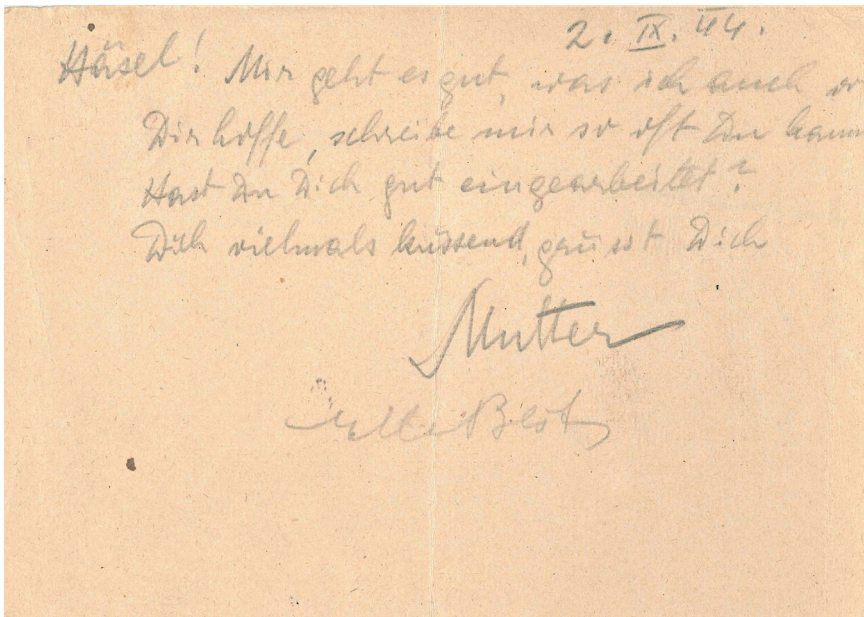 2. IX. 44.
Häsel! Mir geht es gut, was ich auch
Dir hoffe, schreibe mir so oft Du kann
Hast Du Dich gut eingearbeitet?
Dich vielmals küssend, grüsst Dich
Mutter